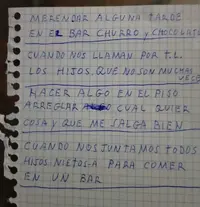 MERENDAR ALGUNA TARDE
EN EL BAR CHURRO y CHOCOLATE
CUANDO NOS LLAMAN POR T.L.
LOS HIJOS, QUE NO SON MUCHAS
VECES
HACER ALGO EN EL PISO
ARREGRAR ALGO CUAL QUIER
COSA y QUE ME SALGA BIEN
CUANDO NOS JUNTAMOS TODOS
HISOS, NIETOS, A PARA COMER
EN UN BAR